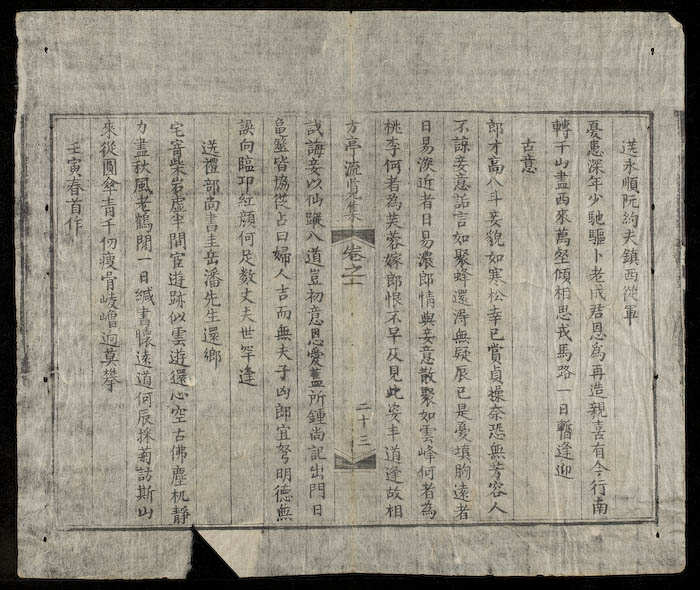 送永順阮約夫鎮西從軍
憂患深年少馳驅卜老成君恩為再造親喜有今行南
轉千山盡西來萬壑傾相思戎馬路一日暫逢迎
古意
郎才高八斗妾貌如寒松幸已賞貞操奈恐無芳容人
不諒妾意諂言如聚蜂還淂無疑辰已是憂填胸遠者
日易淡近者日易濃郎情與妾意散聚如雲峰何者為
桃李何者為芙蓉嫁郎恨不早及見此姿丰道逢故相
方亭流覽集 卷之一 二十三
試誨妾以仙蹤八道豈初意恩愛蓋所鍾尚記出門日
龜筮皆協從占曰婦人吉而無夫子凶郎宜努明德無
誤向臨邛紅顔何足数丈夫世罕逢
送禮部尚書圭岳潘先生還鄉
宅寄柴岩虛半間宦遊跡似雲遊還心空古佛塵机靜
力盡秋風老鶴閒一日緘書懷遠道何辰採菊訪斯山
來從圓傘青千仞瘦骨崚嶒逈莫攀
壬寅春首作